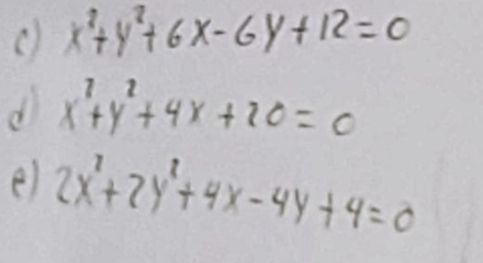 c) x²+y²+6x-6y+12=0
d) x²+y²+4x+20=0
e) 2x²+2y²+4x-4y+4=0